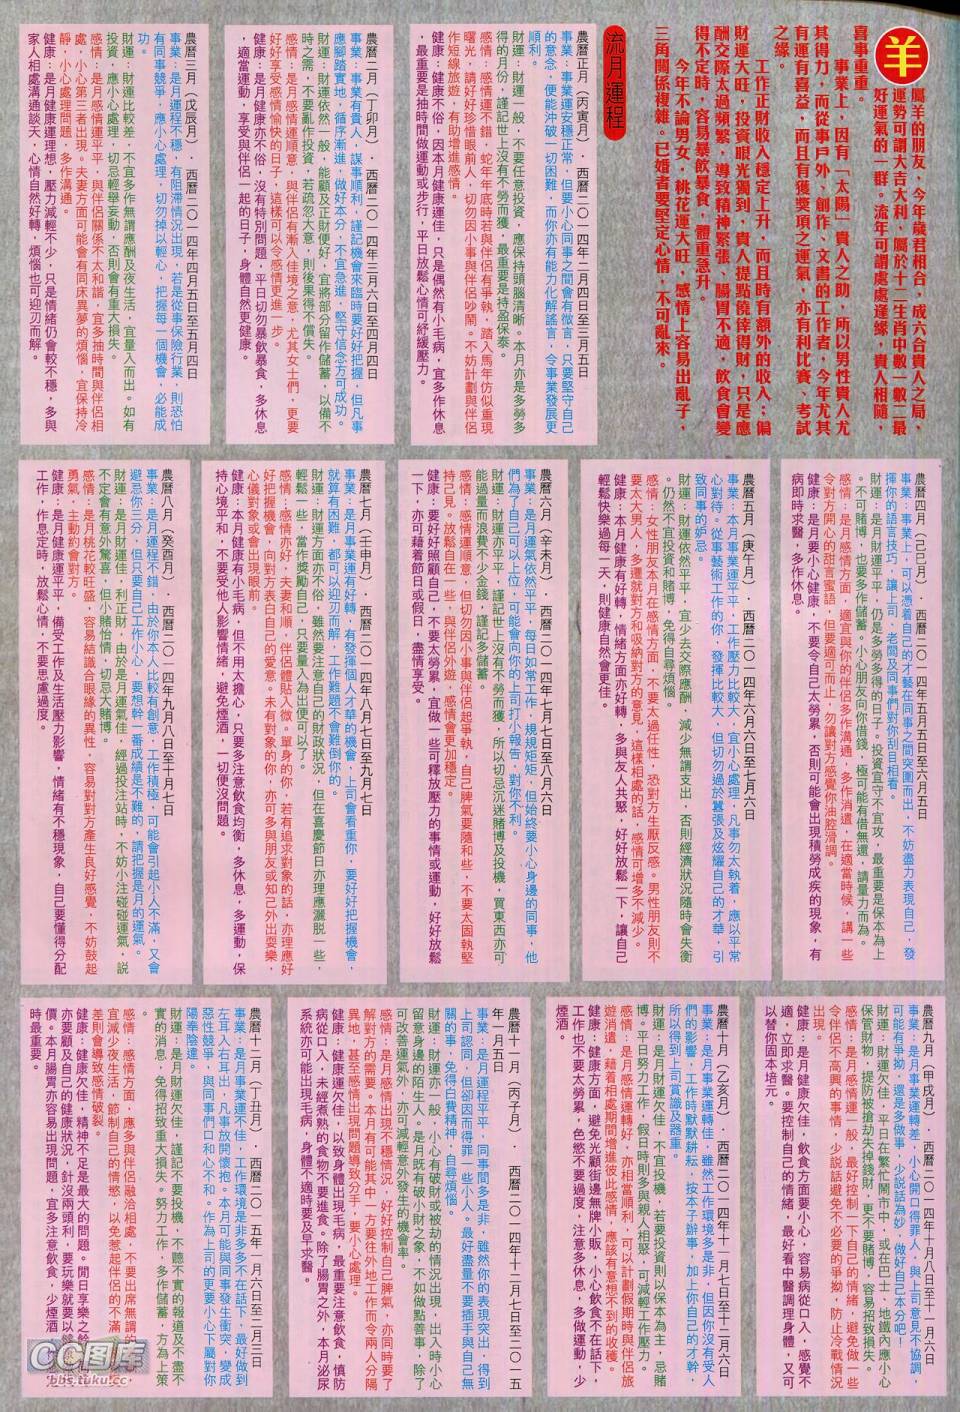 羊
屬羊的朋友，今年歲君相合，成六合貴人之局，
運勢可謂大吉大利，屬於十二生肖中數一數二最
好運氣的一群。流年可謂處處逢緣，貴人相隨，
喜事重重。
事業上，因有「太陽」貴人之助，所以男性貴人尤
其得力，而從事戶外、創作、文書的工作者，今年尤其
有運有喜益，而且有獲獎項之運氣，亦有利比賽、考試
之緣。
工作正財收入穩定上升，而且時有額外的收入；偏
財運大旺，投資眼光獨到，貴人提點僥倖得財，只是應
酬交際太過頻繁，導致精神緊張、腸胃不適，飲食會變
得不定時，容易暴飲暴食，體重急升。
今年不論男女，桃花運大旺，感情上容易出亂子，
三角關係複雜。已婚者要堅定心情，不可亂來。
流月運程
農曆正月（丙寅月）．西曆二〇一四年二月四日至三月五日
事業：事業運安穩正常，但要小心同事之間會有微言，只要堅守自己
的意念，便能沖破一切困難，而你亦有能力化解謠言，令事業發展更
順利。
財運：財運一般，不要任意投資，應保持頭腦清晰。本月亦是多勞多
得的月份，謹記世上沒有不勞而獲，最重要是持盈保泰。
感情：感情運不錯，蛇年年底時若與伴侶有爭執，踏入馬年仿似重現
曙光，請好好珍惜眼前人，切勿因小事與伴侶吵鬧。不妨計劃與伴侶
作短線旅遊，有助增進感情。
健康：是月健康運正常，只是偶然有小毛病，宜多作休息
，最重要是抽時間做運動或步行，平日放鬆心情可紓緩壓力。
農曆二月（丁卯月）．西曆二〇一四年三月六日至四月四日
事業：事業有貴人，謀事順利，謹記機會來臨時要好好把握，但凡事
應腳踏實地，循序漸進，做好本分，不宜急進，堅守信念方可成功。
財運：財運依然一般，能顧及正財便好，宜將部分留作儲蓄，以備不
時之需，不要亂作投資，若疏忽大意，則後果得不償失。
感情：是月感情運順意，與伴侶有漸入佳境之意，尤其女士們，更要
好好享受感情愉快的時候，這樣可以令感情更進一步。
健康：是月健康亦不俗，沒有特別問題，平日切勿暴飲暴食，多休息
，適當運動，享受與伴侶一起的日子，身體自然更健康。
農曆三月（戊辰月）．西曆二〇一四年四月五日至五月四日
事業：是月運程不穩，有阻滯情況出現，若是從事保險行業，則恐怕
有同事競爭，應小心處理，切勿掉以輕心，把握每一個機會，必能成
功。
財運：財運比較差，不宜多作無謂應酬及夜生活，宜量入而出。如有
投資，應小心處理，切忌輕舉妄動，否則會有重大損失。
感情：是月感情運平平，與伴侶關係不太和諧，宜多抽時間與伴侶相
處，小心第三者出現。夫妻方面可能會有同床異夢的煩惱，宜保持冷
靜，小心處理問題，多作溝通。
健康：是月健康運理想，壓力減輕不少，只是情緒仍會較不穩，多與
家人相處溝通談天，心情自然好轉，煩惱也可迎刃而解。
農曆四月（己巳月）．西曆二〇一四年五月五日至六月五日
事業：事業上，可以憑着自己的才藝在同事之間突圍而出，不妨盡力表現自己，發
揮你的語言技巧，讓上司、老闆及同事們對你刮目相看。
財運：是月財運平平，仍是多勞多得的日子。投資宜守不宜攻，最重要是保本為上
。不可賭博，也要多作儲蓄。小心朋友向你借錢，極可能有借無還，請量力而為。
感情：是月感情方面，適宜與你的伴侶多作溝通，多作消遣，在適當時候，講一些
令對方開心的甜言蜜語，但要適可而止，勿讓對方感覺你油腔滑調。
健康：是月要小心健康，不要令自己太勞累，否則可能會出現積勞成疾的現象，有
病即時求醫，多作休息。
農曆五月（庚午月）．西曆二〇一四年六月六日至七月六日
事業：本月事業運平平，工作壓力比較大，宜小心處理，凡事勿太執着，應以平常
心對待。從事藝術工作的你，發揮比較大，但切勿過於囂張及炫耀自己的才華，引
致同事的妒忌。
財運：財運依然平平，宜少去交際應酬，減少無謂支出，否則經濟狀況隨時會失衡
。仍然不宜投資和賭博，免得自尋煩惱。
感情：女性朋友本月在感情方面，不要太過任性，恐對方生厭反感。男性朋友則不
要太大男人，多遷就對方和吸納對方的意見，這樣相處的話，感情可增多不減少。
健康：本月健康有好轉，情緒方面亦好轉，多與友人共聚，好好放鬆一下，讓自己
輕鬆快樂過每一天，則健康自然會更佳。
農曆六月（辛未月）．西曆二〇一四年七月七日至八月六日
事業：是月事業運依然平平，每日如常工作，規規矩矩，但始終要小心身邊的同事，他
們為了自己可以上位，可能會向你的上司打小報告，對你不利。
財運：財運亦平平，謹記世上沒有不勞而獲，所以切忌沉迷賭博及投機，買東西亦可
能過量而浪費不少金錢，謹記多儲蓄。
感情：感情運順意，但切勿因小事與伴侶起爭執，自己脾氣要隨和些，不要太固執堅
持己見。放鬆自在一些，與伴侶外遊，感情會更加穩定。
健康：要好好照顧自己，不要太勞累，宜做一些可釋放壓力的事情或運動，好好放鬆
一下，亦可藉着節日或假日，盡情享受。
農曆七月（壬申月）．西曆二〇一四年八月七日至九月七日
事業：是月事業運有好轉，有發揮個人才華的機會，上司會看重你，要好好把握機會，
就算有困難，都可以迎刃而解，工作難題不會難倒你的。
財運：財運方面亦不俗，雖然要注意自己的財政狀況，但在喜慶節日亦理應灑脫一些，
輕鬆一些，當作獎勵自己，只要量入為出便可以了。
感情：感情亦好，夫妻和順，伴侶體貼入微。單身的你，若有追求對象的話，亦理應好
好把握機會，向對方表白自己的愛意。未有對象的你，亦可多與朋友或知己外出耍樂，
心儀對象或會出現眼前。
健康：本月健康有小毛病，但不用太擔心，只要多注意飲食均衡，多休息，多運動，保
持心境平和，不要受他人影響情緒，避免煙酒，一切便沒問題。
農曆八月（癸酉月）．西曆二〇一四年九月八日至十月七日
事業：是月運程不錯，由於你本人比較有創意，工作積極，可能會引起小人不滿，又會
避忌你三分，但只要自己工作小心，要想幹一番成績是不難的，請把握是月的運氣。
財運：是月財運佳，利正財，由於是月運氣佳，經過投注站時，不妨小注碰碰運氣，說
不定會有意外驚喜，但小賭怡情，切忌大賭博。
感情：是月桃花較旺盛，容易結識合眼緣的異性，容易對對方產生良好感覺，不妨鼓起
勇氣，主動約會對方。
健康：是月健康運平平，備受工作及生活壓力影響，情緒有不穩現象，自己要懂得分配
工作，作息定時，放鬆心情，不要思慮過度。
農曆九月（甲戌月）．西曆二〇一四年十月八日至十一月六日
事業：是月事業運轉差，小心開口得罪人，與上司意見不協調，
可能有爭拗，還是多做事，少說話為妙，做好自己本分吧！
財運：財運欠佳，平日在繁忙鬧市中，或在巴士、地鐵內應小心
保管財物，提防被搶劫失掉錢財，更不要賭博，容易招致損失。
感情：是月感情運一般，最好控制一下自己的情緒，避免做一些
令伴侶不高興的事情，少說話避免不必要的爭拗，防止冷戰情況
出現。
健康：是月健康欠佳，飲食方面要小心，容易病從口入，感覺不
適，立即求醫。要控制自己的情緒，最好看中醫調理身體，又可
以替你固本培元。
農曆十月（乙亥月）．西曆二〇一四年十一月七日至十二月六日
事業：是月事業運轉佳，雖然工作環境多是非，但因你沒有受人
們的影響，工作時默默耕耘，按本子辦事，加上你自己的才幹，
所以得到上司賞識及器重。
財運：是月財運欠佳，不宜投機，若要投資則以保本為主，忌賭
博。平日努力工作，假日時則多與親人相聚，可減輕工作壓力。
感情：是月感情運轉好，亦相當順利，可以計劃假期時與伴侶旅
遊消遣，藉着相處期間增進彼此感情，應該有意想不到的收穫。
健康：健康方面，避免光顧街邊無牌小販，小心飲食不在話下，
工作也不要太勞累，色慾不要過度，注意多休息，多做運動，少
煙酒。
農曆十一月（丙子月）．西曆二〇一四年十二月七日至二〇一五
年一月五日
事業：是月運程平平，同事間多是非，雖然你的表現突出，得到
上司認同，但卻因而得罪一些小人。最好盡量不要插手與自己無
關的事，免得白費精神，自尋煩惱。
財運：財運亦一般，小心有破財或被劫的情況出現，出入時小心
留意身邊的陌生人。是月既有破小財之象，不如做點善事，除了
可改善運氣外，亦可減輕意外發生的機會率。
感情：是月感情出現不穩情況，好好控制自己脾氣，亦同時要了
解對方的需要。本月有可能其中一方要往外地工作而令兩人分隔
異地，甚至感情出現問題導致分手，要小心處理。
健康：健康運欠佳，以致身體出現毛病，最重要注意飲食，慎防
病從口入，未經煮熟的食物不要進食。除了腸胃之外，本月泌尿
系統亦可能出現毛病，身體不適時要及早求醫。
農曆十二月（丁丑月）．西曆二〇一五年一月六日至二月三日
事業：是月事業運不佳，工作環境是非多多不在話下，最好做到
左耳入右耳出，凡事放開懷抱。本月可能與同事發生衝突，變成
惡性競爭，與同事們口和心不和。作為上司的更要小心下屬對你
陽奉陰違。
財運：是月財運欠佳，謹記不要投機，不聽不實的報道及不盡不
實的消息，免得招致重大損失。努力工作，多作儲蓄，方為上策
。
感情：是月感情方面，應多與伴侶融洽相處，不要出席無謂的
宜減少夜生活，節制自己的情慾，以免惹起伴侶的不滿
差則會導致感情破裂。
健康：健康欠佳，精神不足是最大的問題。閒日享樂之餘
亦要顧及自己的健康狀況，針沒兩頭利，要玩樂就要以健
價。本月腸胃亦容易出現問題，宜多注意飲食，少煙酒
時最重要。
CC图库
bbs.tuku.cc